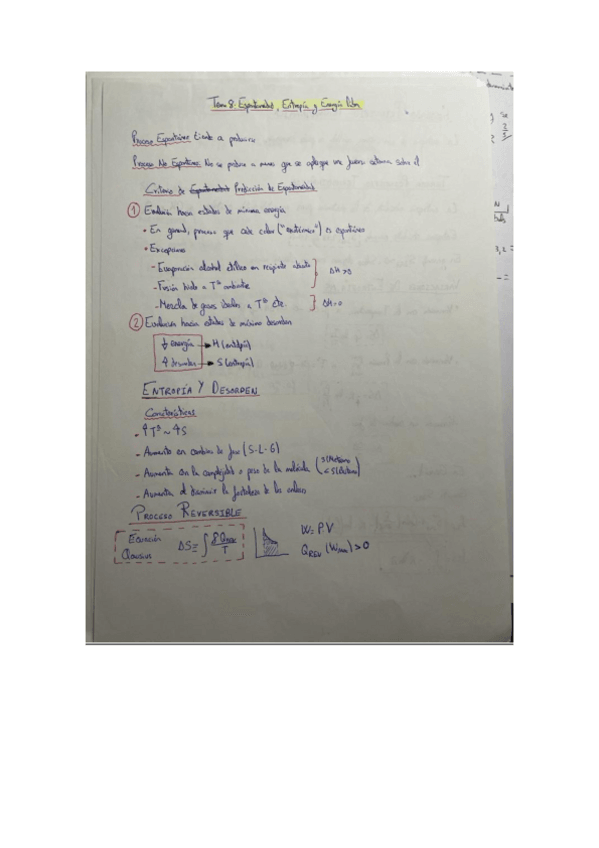 Tema 8: Espontaneidad, Entropía y Energía libre
Proceso Espontáneo: tiende a producirse
Proceso No Espontáneo: No se produce a menos que se aplique una fuerza externa sobre él
Criterio de Espontaneidad Predicción de Espontaneidad
① Evolución hacia estados de mínima energía
• En general, procesos que cede calor ("exotérmicos") es espontáneo
• Excepciones
- Evaporación alcohol etílico en recipiente abierto
- Fusión hielo a Tª ambiente
ΔH>0
- Mezcla de gases ideales a Tª cte. ΔH=0
② Evolución hacia estados de máximo desorden
↓ energía → H (entalpía)
↑ desorden → S (entropía)
ENTROPÍA Y DESORDEN
Características
- ↑Tª ~ ↑S
- Aumenta en cambios de fase (S-L-G)
- Aumenta con la complejidad o peso de la molécula (S(Metano) < S(Etano))
- Aumenta al disminuir la fortaleza de los enlaces
PROCESO REVERSIBLE
Ecuación
Clausius
ΔS = ∫ δQrev / T
W = PV
QREV (Wmax) > 0